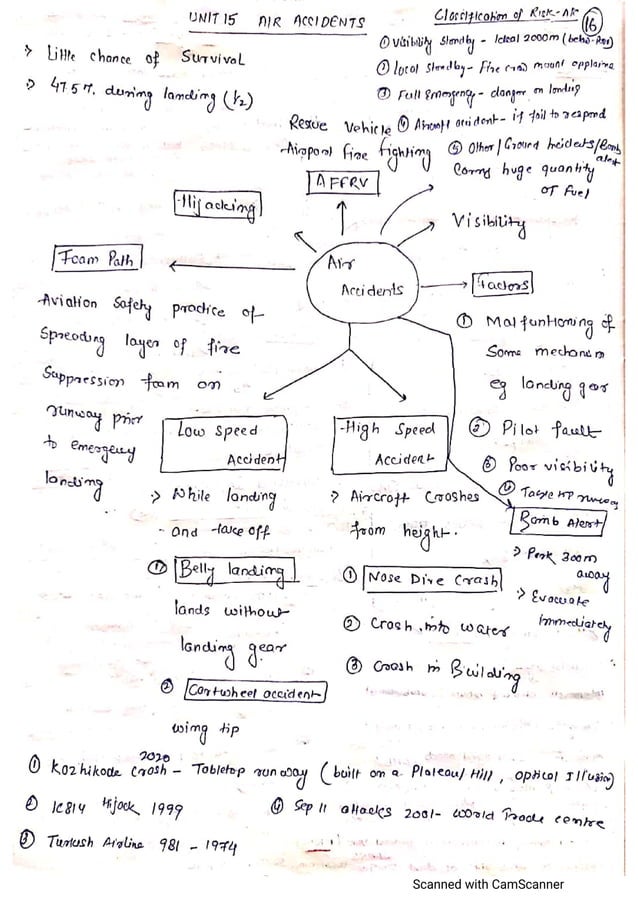 UNIT 15 AIR ACCIDENTS
Classification of Risk-Air
16
→ Little chance of Survival
→ 47.57% during landing (1/2)
① Visibility Standby - Ideal 2000m
① Local Standby - Fire crew mount appliance
③ Full Emergency - danger on landing
④ Aircraft accident - if fail to respond
⑤ Other/Ground Incidents/Bomb alert
Rescue Vehicle
Airport fire fighting
AFFRV
Carry huge quantity
of fuel
Hijacking
Visibility
Foam Path
Air
Accidents
Factors
Aviation Safety practice of
Spreading layer of fire
Suppression foam on
runway prior
to emergency
landing
① Malfuntioning of
Some mechanism
eg landing gear
② Pilot fault
③ Poor visibility
④ Table TP runway
Low Speed
Accident
→ While landing
and take off
① Belly landing
lands without
landing gear
② Cartwheel accident
wing tip
High Speed
Accident
→ Aircraft Crashes
from height.
① Nose Dive Crash
② Crash into water
③ Crash in Building
Bomb Alert
→ Park 300m
away
→ Evacuate
Immediately
① Kozhikode Crash 2020 - Tabletop runway (built on a Plateau/Hill, optical Illusion)
② IC814 Hijack 1999
④ Sep 11 attacks 2001- World Trade centre
③ Turkish Airline 981 - 1974
Scanned with CamScanner